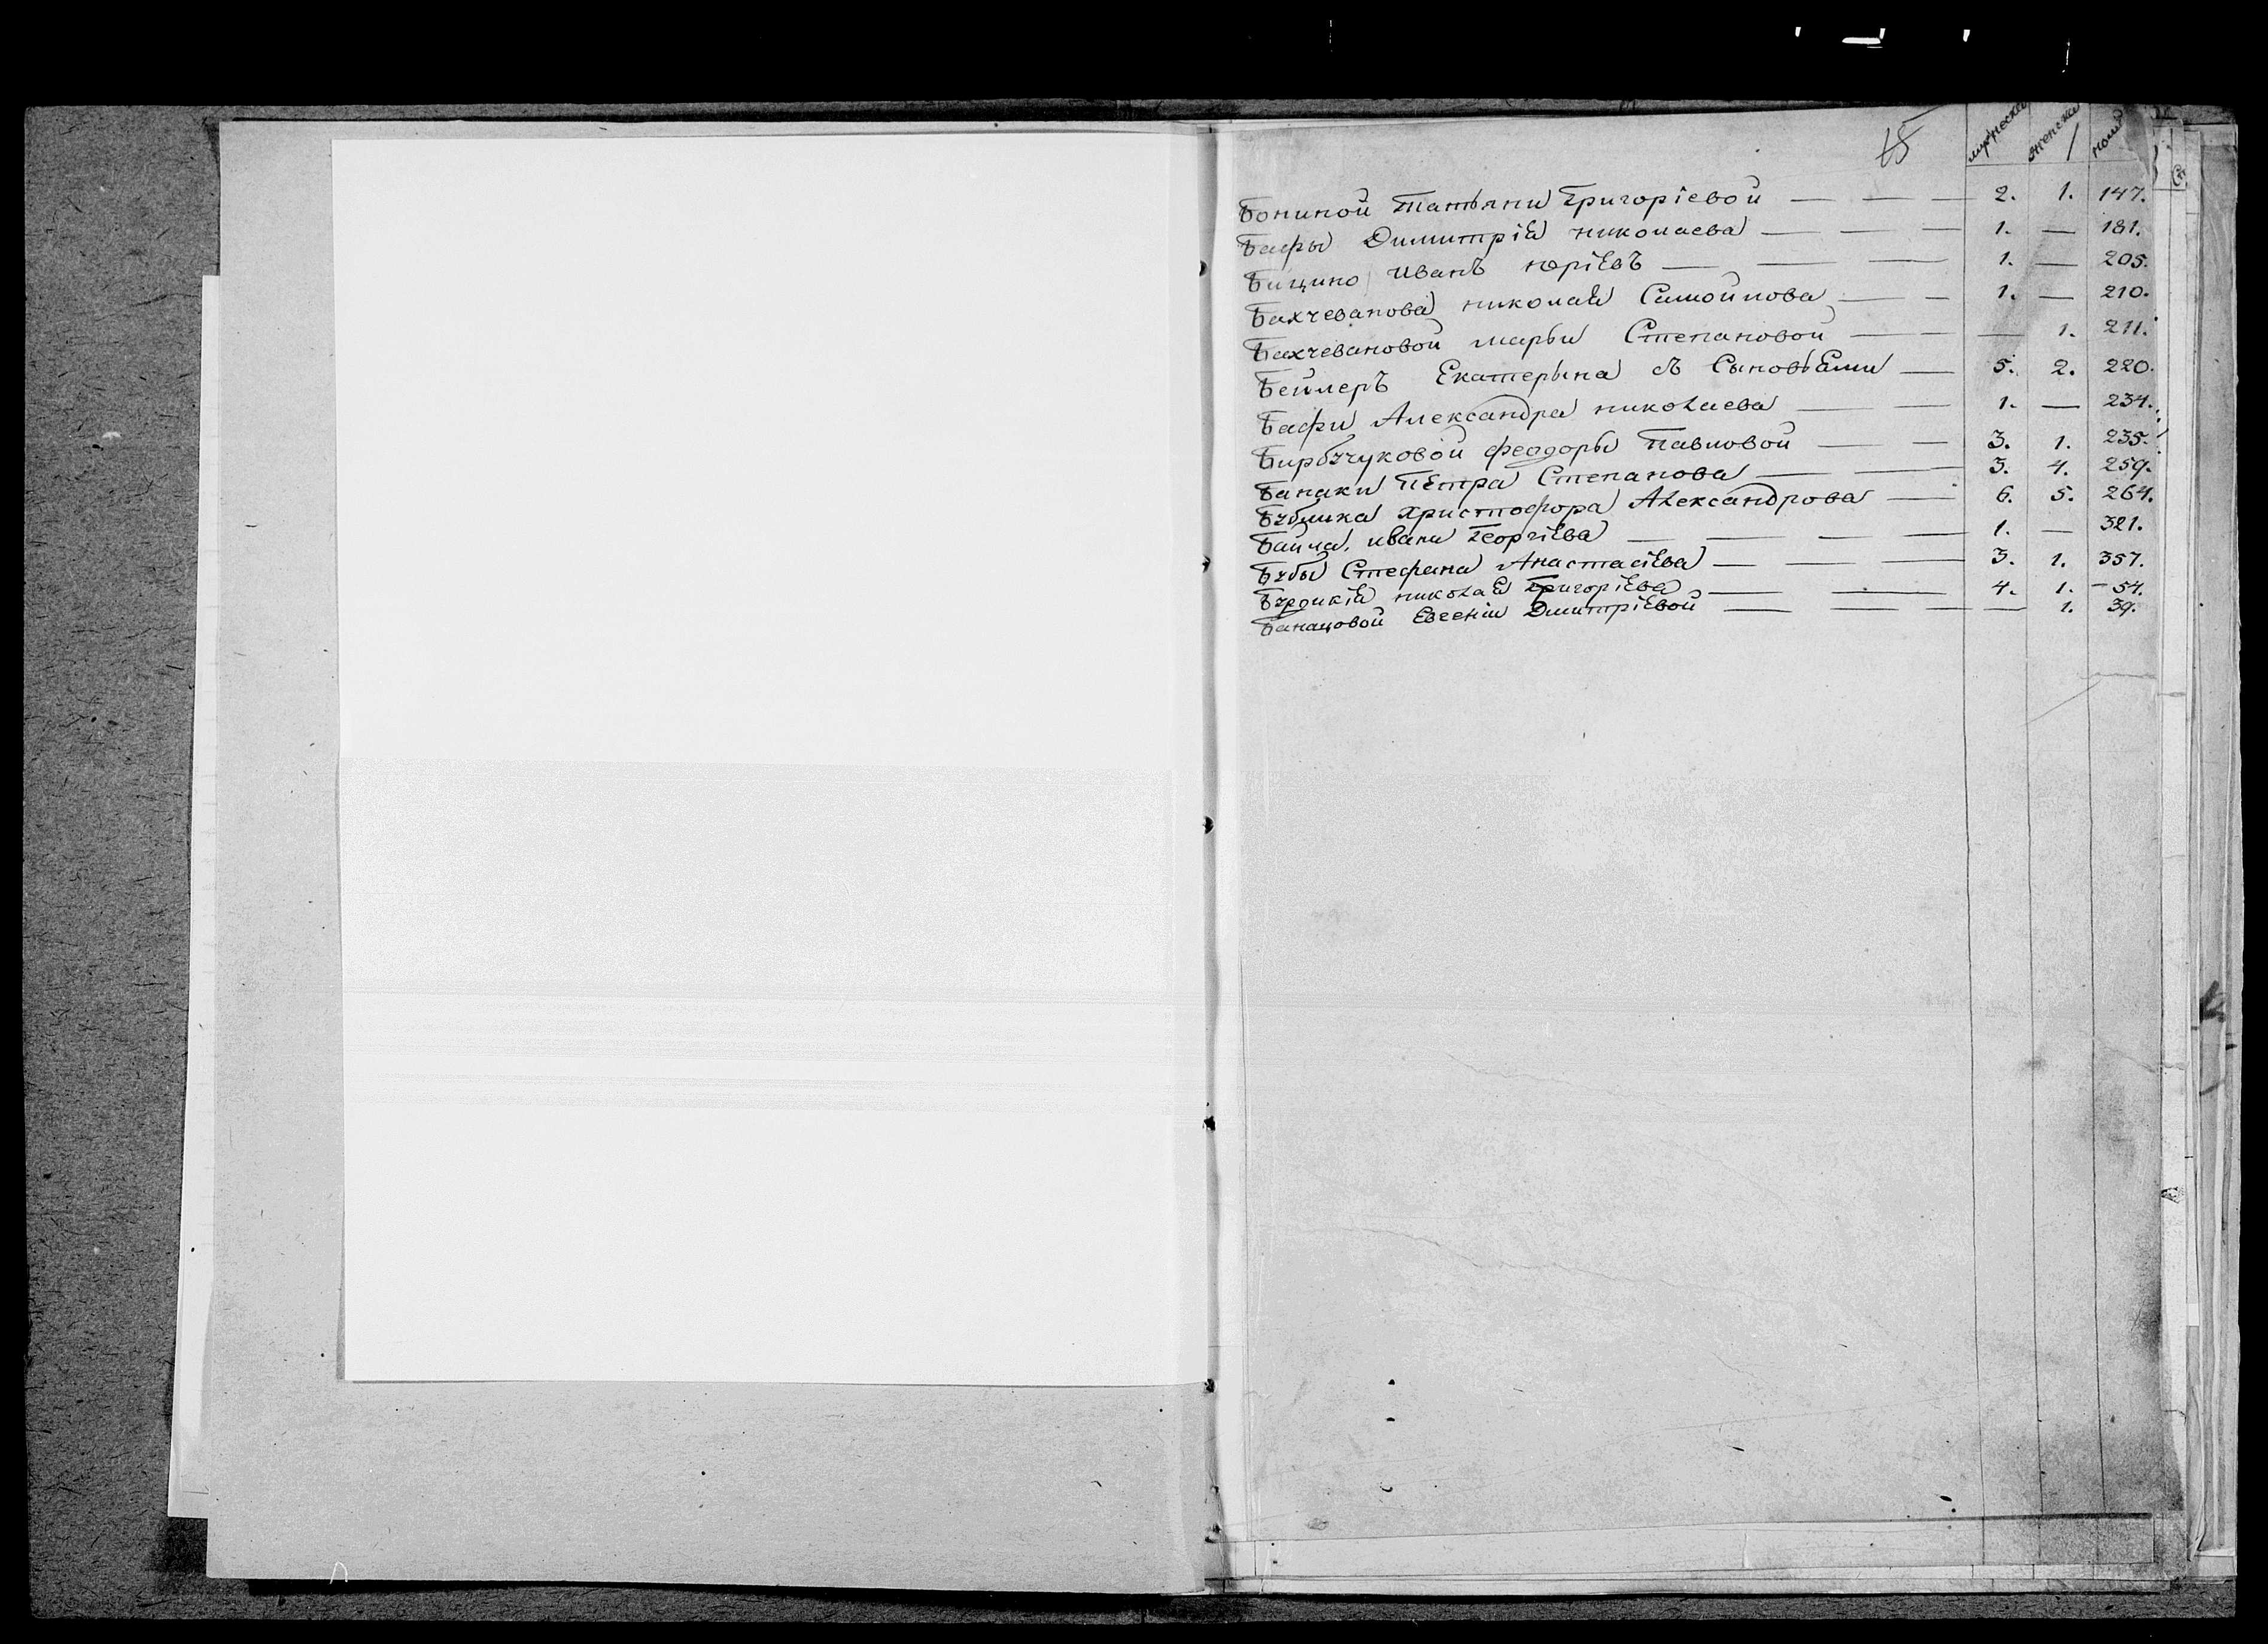 15
мужеска женска номе
Бониной Татьяни Григоріевой — — — 2. 1. 147.
Бафы Димитрія николаева — — — 1. — 181.
Бицино Иванъ юріевъ — — — 1. — 205.
Бахчеванова николая Самойлова — — 1. — 210.
Бахчевановой марьи Степановой — — — 1. 211.
Бейлеръ Екатерына съ Сыновьями — 5. 2. 220.
Бафи Александра николаева — — 1. — 234.
Феодоры Павловой — — 3. 1. 235.
Банаки Петра Степанова — — 3. 4. 259.
Бублика Христофора Александрова — 6. 5. 264.
Ивана Георгіева — — — — 1. — 321.
Бубы Стефана Анастасіева — — — 3. 1. 357.
николая Григоріева — — — 4. 1. — 54.
Банацовой Евгеніи Димитріевой — — — — 1. 39.